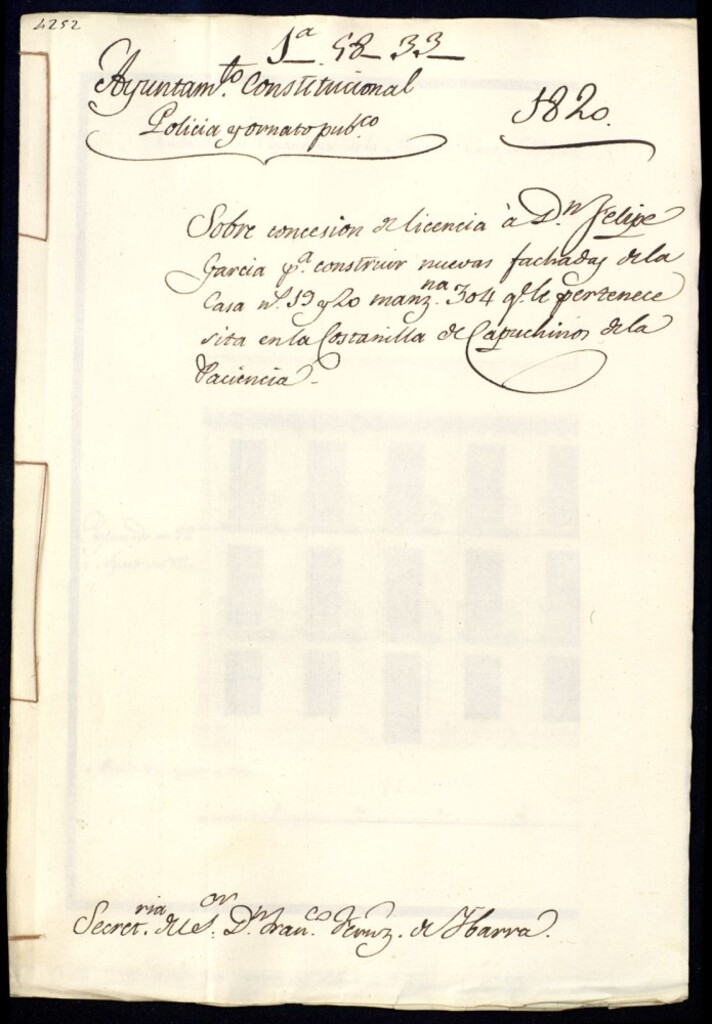 4252
1ª 58 33
Ayuntamto. Constitucional
Policia y ornato pubco
1820.
Sobre concesion de licencia à Dn Felipe
Garcia pª. construir nuevas fachadas de la
Casa nº. 19 y 20 manzna. 304 qe. le pertenece
sita en la Costanilla de Capuchinos de la
Paciencia.
Secretria. del Sor. Dn Franco. Fernz. de Ibarra.